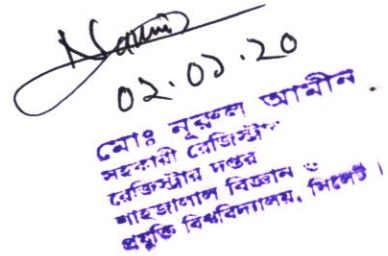 ০২.০১.২০
মোঃ নূরুল আমীন
সহকারী রেজিস্ট্রার
রেজিস্ট্রার দপ্তর
শাহজালাল বিজ্ঞান ও
প্রযুক্তি বিশ্ববিদ্যালয়, সিলেট।